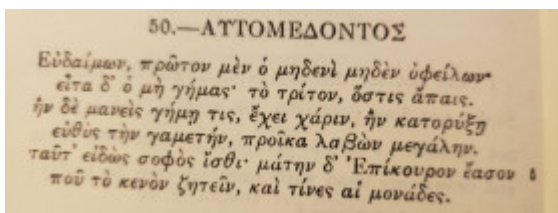 50.—ΑΥΤΟΜΕΔΟΝΤΟΣ
Εὐδαίμων, πρῶτον μὲν ὁ μηδενὶ μηδὲν ὀφείλων·
εἶτα δ' ὁ μὴ γήμας· τὸ τρίτον, ὅστις ἄπαις.
ἢν δὲ μανεὶς γήμῃ τις, ἔχει χάριν, ἢν κατορύξῃ
εὐθὺς τὴν γαμετήν, προῖκα λαβὼν μεγάλην.
ταῦτ' εἰδὼς σοφὸς ἴσθι· μάτην δ' Ἐπίκουρον ἔασον 5
ποῦ τὸ κενὸν ζητεῖν, καὶ τίνες αἱ μονάδες.